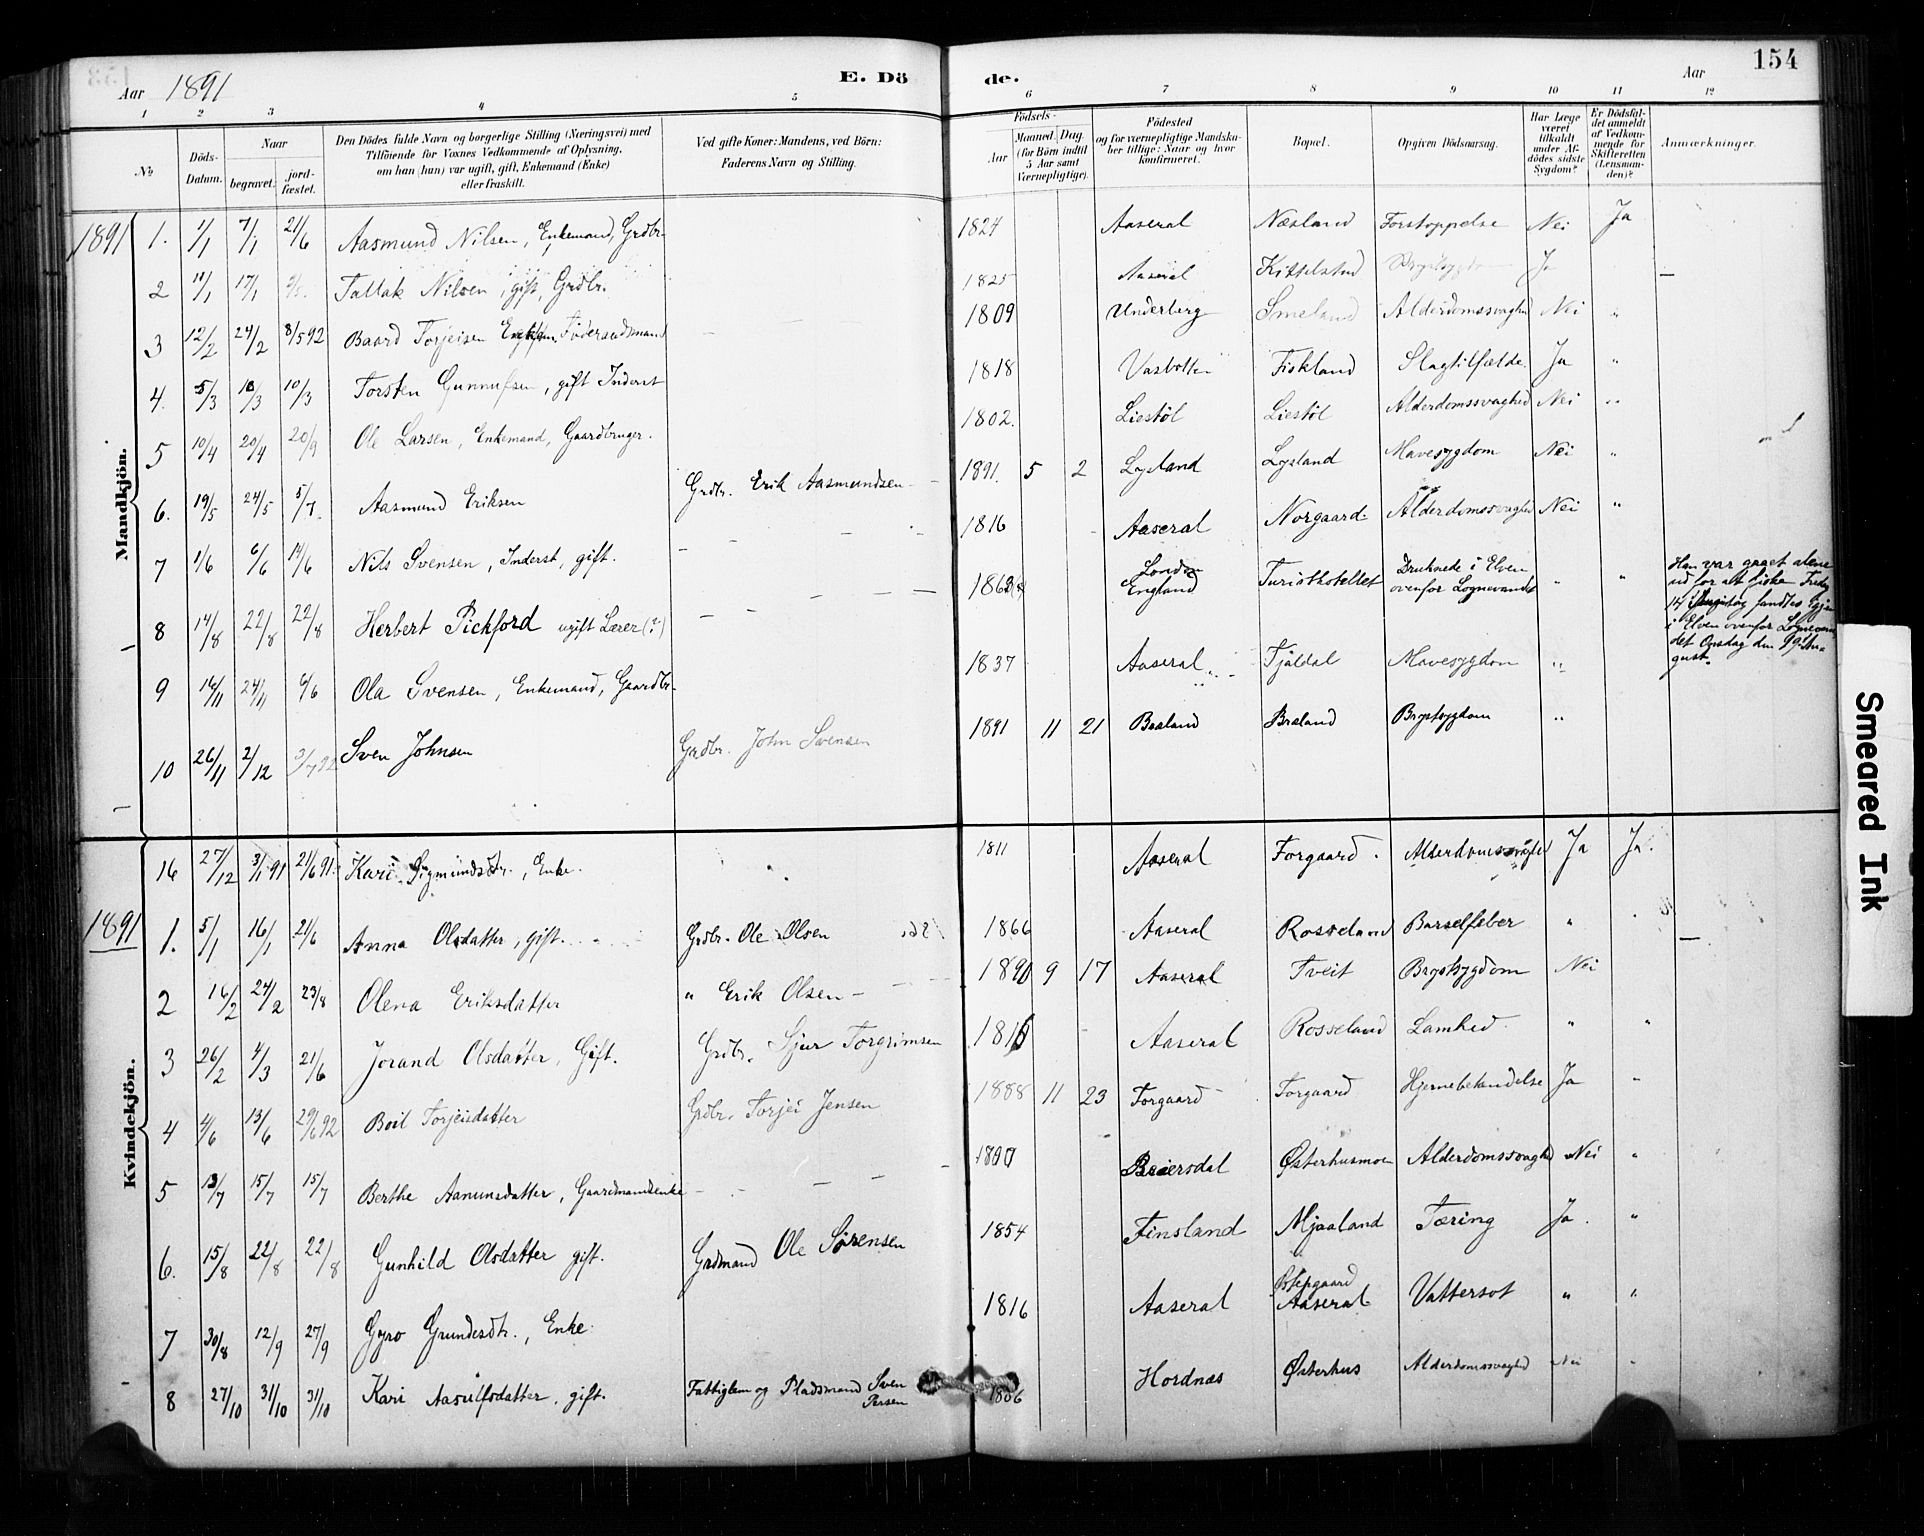 154
E. Dö de.
Aar 1891
Aar
1 2 3 4 5 6 7 8 9 10 11 12
№
Döds-Datum.
Naar
begravet.
jord-fæstet.
Den Dödes fulde Navn og borgerlige Stilling (Næringsvei) med
Tilföiende for Voxnes Vedkommende af Oplysning,
om han (hun) var ugift, gift, Enkemand (Enke)
eller fraskilt.
Ved gifte Koner: Mandens, ved Börn:
Faderens Navn og Stilling.
Födsels-
Aar
Maaned. Dag.
(for Börn indtil
5 Aar samt
Værnepligtige).
Födested
og for værnepligtige Mandska-
ber tillige: Naar og hvor
konfirmeret.
Bopæl.
Opgiven Dödsaarsag.
Har Læge
været
tilkaldt
under Af-
dödes sidste
Sygdom?
Er Dödsfal-
det anmeldt
af Vedkom-
mende for
Skifteretten
(Lensman-
den)?
Anmærkninger.
Mandkjön.
1891 1. 1/1 7/1 21/6 Aasmund Nilsen, Enkemand, Grdbr. 1824 Aaseral Næsland Forstoppelse Nei Ja
2 11/1 17/1 Tallak Nilsen, gift, Grdbr. 1825 Aaseral Kittelstad Brystsygdom Ja
3 12/2 24/2 8/5 92 Baard Torjeisen Enkem. Föderaadsmand 1809 Underberg Smeland Alderdomssvaghed Nei "
4. 5/3 10/3 10/3 Torsten Gunnufsen, gift Inderst 1818 Vasbotten Fiskland Slagtilfælde Ja "
5 10/4 20/4 20/9 Ole Larsen, Enkemand, Gaardbruger. 1802. Liestöl Liestöl Alderdomssvaghed Nei "
6. 19/5 24/5 5/7. Aasmund Eriksen Grdbr. Erik Aasmundsen 1891. 5 2 Lysland Lysland Mavesygdom Nei "
7 1/6 6/6 14/6 Nils Svensen, Inderst, gift. 1816 Aaseral Norgaard Alderdomssvaghed Nei "
8 14/8 22/8 22/8 Herbert Pickford ugift Lærer (?) London England Turisthotellet Druknede i Elven ovenfor Lognevandet " "
Han var gaaet alene
ud for at fiske Fredag
14
i Elven ovenfor Lognevan
det Onsdag den 19 Au-
gust.
9 16/11 24/11 6/6 Ola Svensen, Enkemand, Gaardbr. 1837 Aaseral Tjaldal Mavesygdom "
10 26/11 2/12 3/7 92 Sven Johnsen Grdbr. John Svensen 1891 11 21 Breland Breland Brystsygdom "
Kvindekjön.
16 27/12 3/1 91 21/6 91. Kari Sigmundsdtr., Enke. 1811 Aaseral Forgaard Alderdomssvaghed Ja Ja.
1891 1. 5/1 16/1 21/6 Anna Olsdatter, gift. Grdbr. Ole Olsen 1866 Aaseral Rosseland Barselfeber "
2 16/2 24/2 23/8 Olena Eriksdatter " Erik Olsen 1890 9 17 Aaseral Tveit Brystsygdom Nei
3 26/2 4/3 21/6 Jorand Olsdatter, Gift. Grdbr. Sjur Torgrimsen Aaseral Rosseland Lamhed. " "
4 4/6 13/6 29/6 92 Boil Torjeisdatter Grdbr. Torjei Jensen 1888 11 23 Forgaard Forgaard Hjernebetændelse Ja "
5 13/7 15/7 15/7 Berthe Aanunsdatter, Gaardmandsenke Beiersdal Østerhusmoen Alderdomssvaghed Nei "
6. 15/8 22/8 22/8 Gunhild Olsdatter gift. Grdmand Ole Sørensen 1854 Finsland Mjaaland Tæring Ja. "
7 30/8 12/9 27/9 Gyro Grundesdtr., Enke 1816 Aaseral Aaseral Vattersot " "
8 27/10 31/10 31/10 Kari Aasulfsdatter, gift. Fattiglem og Pladsmand Sven Persen 1806 Hordnæs Østerhus Alderdomssvaghed Nei "
Smeared Ink